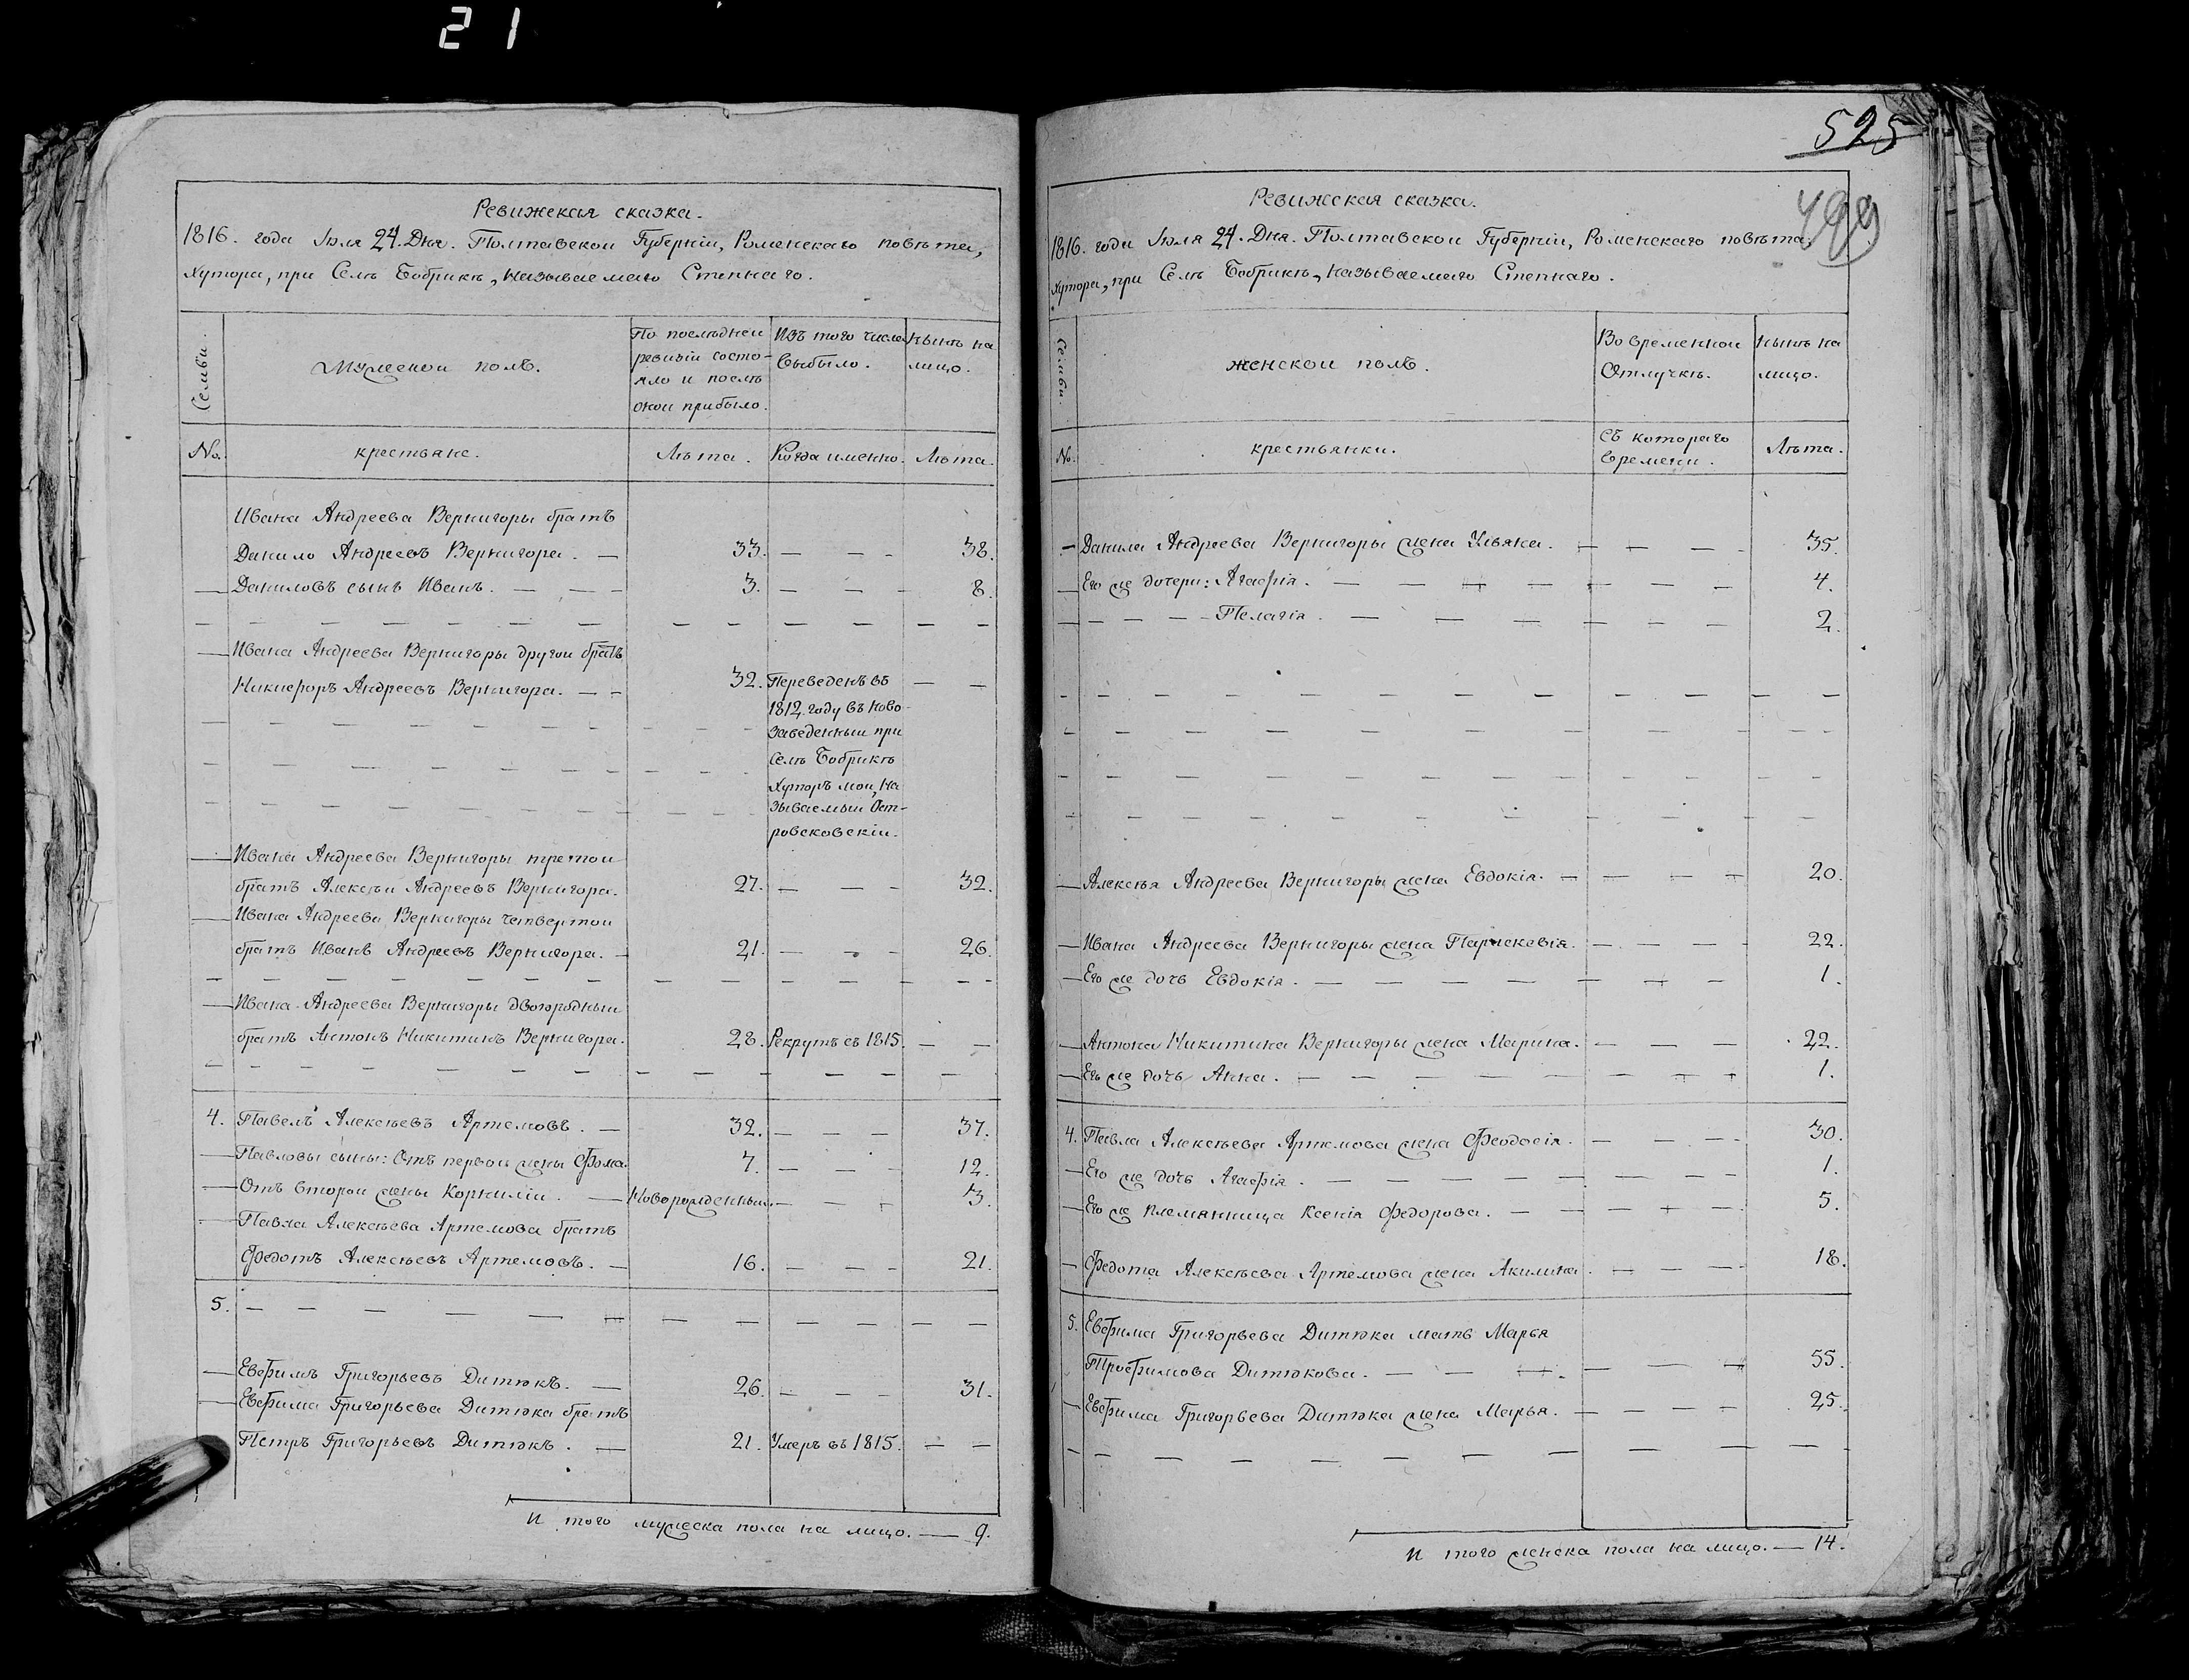 21
525
499
Ревижская сказка.
1816. года Іюля 24. Дня. Полтавской Губерніи, Роменскаго повѣта,
Хутора, при Селѣ Бобрикѣ, называемаго Степнаго.
Семьи.
Мужеской полъ.
По последней
ревизіи состо-
яло и послѣ
оной прибыло.
Изъ того числа
выбыло.
Нынѣ на
лицо.
No.
крестьяне.
Лѣта.
Когда именно.
Лѣта.
Ивана Андреева Вернигоры братъ
Данило Андреевъ Вернигора. — 33. — — — 38.
— Даниловъ сынъ Иванъ. — — — 3. — — — 8.
— Ивана Андреева Вернигоры другой братъ
Никифоръ Андреевъ Вернигора. — — 32. Переведенъ въ — —
1812 году въ ново-
заведенный при
Селѣ Бобрикѣ
Хуторъ мой, на
зываемый Ост-
ровсковскій.
— Ивана Андреева Вернигоры третой
братъ Алексѣй Андреевъ Вернигора. 27. — — — 32.
— Ивана Андреева Вернигоры четвертой
братъ Иванъ Андреевъ Вернигора. — 21. — — — 26.
— Ивана Андреева Вернигоры двоюродный
братъ Антонъ Никитинъ Вернигора. 28. Рекрутъ съ 1815. — —
4. Павелъ Алексѣевъ Артемовъ. — 32. — — — 37.
— Павловы сыны: Отъ первой жены Фома. 7. — — — 12.
— Отъ второй жены Корнилій. — Новорожденный. — — — 3.
— Павла Алексѣева Артемова братъ
Федотъ Алексѣевъ Артемовъ. — 16. — — — 21.
5. — — — — — — — — — — — —
— Евфимъ Григорьевъ Дитюкъ. — 26. — — — 31.
— Евфима Григорьева Дитюка братъ
Петръ Григорьевъ Дитюкъ. — 21. Умеръ въ 1815. — —
И того мужеска пола на лицо. — 9.
Ревижская сказка.
1816. года Іюля 24. Дня. Полтавской Губерніи, Роменскаго повѣта,
Хутора, при Селѣ Бобрикѣ, называемаго Степнаго.
Семьи.
женской полъ.
Во временной
Отлучкѣ.
Нынѣ на
лицо.
No.
крестьянки.
Съ котораго
времени.
Лѣта.
— Данила Андреева Вернигоры жена Ульяна. — — — — 35.
— Его же дочери: Агафія. — — — — — — 4.
— — — — — Пелагія. — — — — — — 2.
— Алексѣя Андреева Вернигоры жена Евдокія. — — — — 20.
— Ивана Андреева Вернигоры жена Параскевія. — — — 22.
— Его же дочь Евдокія. — — — — — — — — 1.
— Антона Никитина Вернигоры жена Марина. — — — 22.
— Его же дочь Анна. — — — — — — — — 1.
4. Павла Алексѣева Артемова жена Феодосія. — — — 30.
— Его же дочь Агафія. — — — — — — — — 1.
— Его же племянница Ксенія Федорова. — — — — — 5.
— Федота Алексѣева Артемова жена Акилина. — — — 18.
5. Евфима Григорьева Дитюка мать Марья
Трофимова Дитюкова. — — — — — — 55.
— Евфима Григорьева Дитюка жена Марья. — — — — 25.
И того женска пола на лицо. — 14.